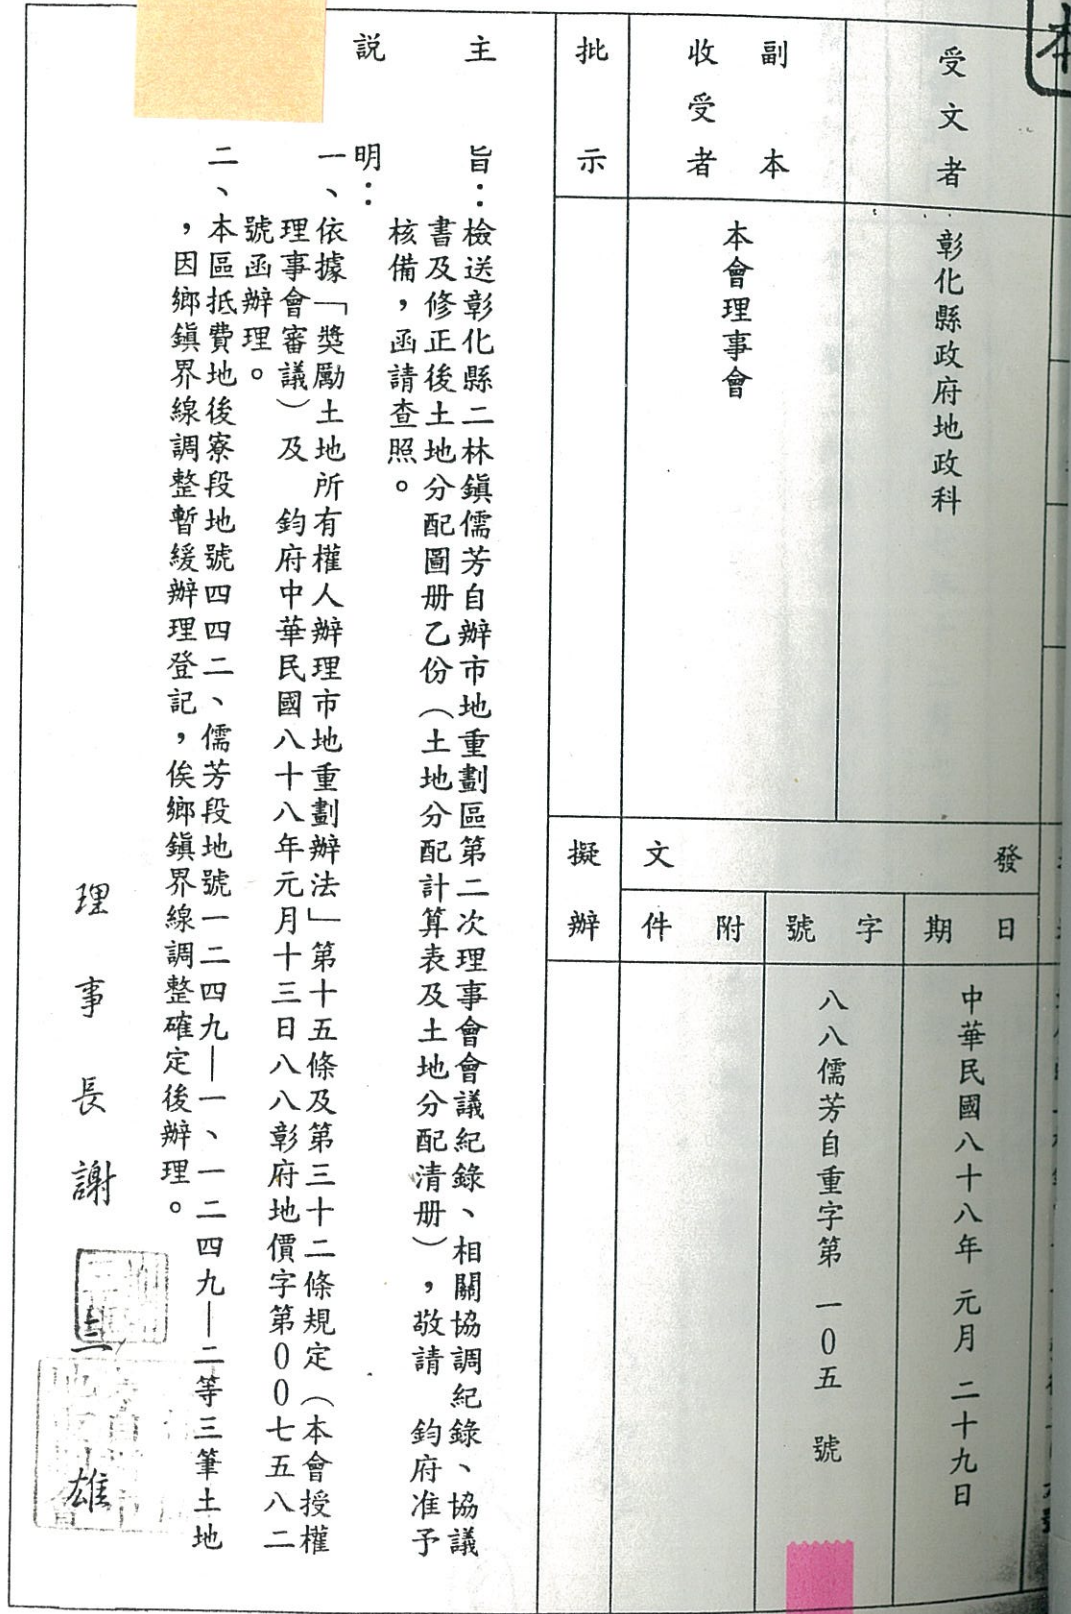 本
受文者
彰化縣政府地政科
副本
收受者
本會理事會
批示
發文
日期
中華民國八十八年 元月 二十九日
字號
八八儒芳自重字第 一0五 號
附件
擬辦
主旨：檢送彰化縣二林鎮儒芳自辦市地重劃區第二次理事會會議紀錄、相關協調紀錄、協議
書及修正後土地分配圖册乙份（土地分配計算表及土地分配清册），敬請 鈞府准予
核備，函請查照。
説明：
一、依據「獎勵土地所有權人辦理市地重劃辦法」第十五條及第三十二條規定（本會授權
理事會審議）及 鈞府中華民國八十八年元月十三日八八彰府地價字第00七五八二
號函辦理。
二、本區抵費地後寮段地號四四二、儒芳段地號一二四九—一、一二四九—二等三筆土地
，因鄉鎮界線調整暫緩辦理登記，俟鄉鎮界線調整確定後辦理。
理事長謝 雄